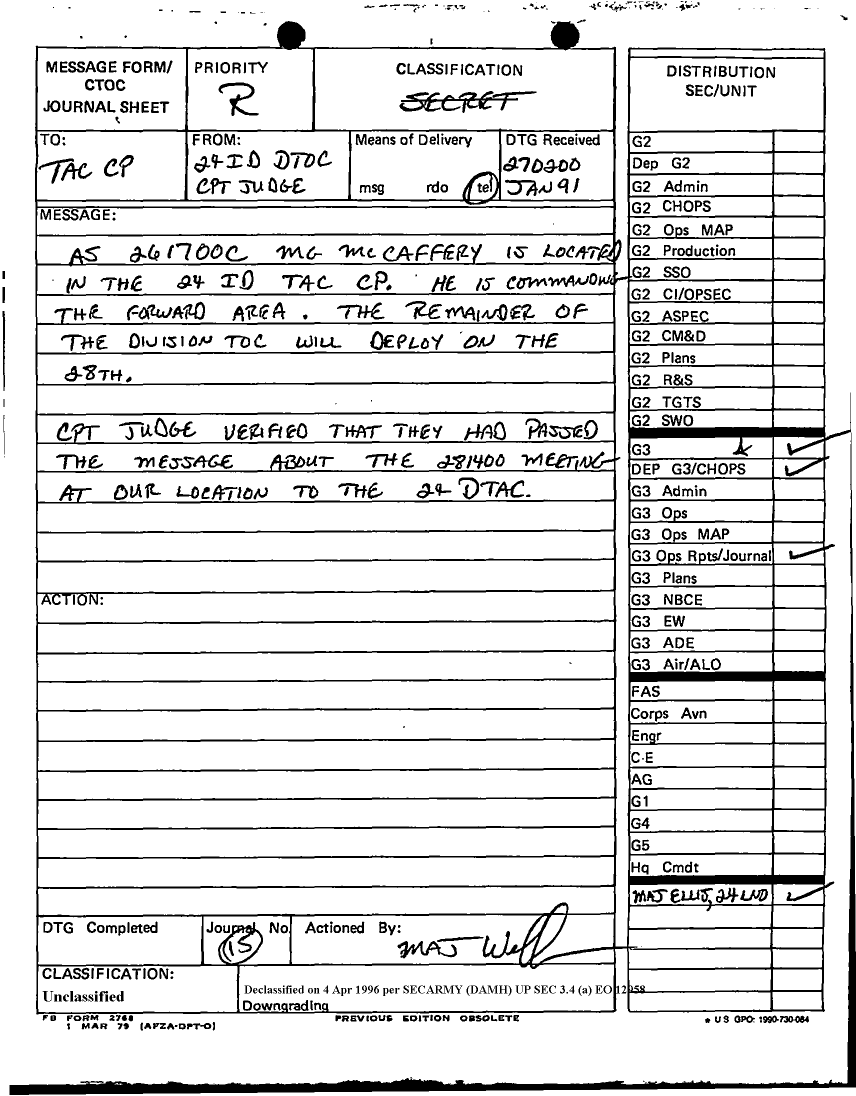 MESSAGE FORM/
CTOC
JOURNAL SHEET
PRIORITY
R
CLASSIFICATION
SECRET
DISTRIBUTION
SEC/UNIT
TO:
TAC CP
FROM:
24 ID DTOC
CPT JUDGE
Means of Delivery
msg rdo tel
DTG Received
270200
JAN 91
MESSAGE:
AS 261700C MG MCCAFFERY IS LOCATED
IN THE 24 ID TAC CP. HE IS COMMANDING
THE FORWARD AREA. THE REMAINDER OF
THE DIVISION TOC WILL DEPLOY ON THE
28TH.
CPT JUDGE VERIFIED THAT THEY HAD PASSED
THE MESSAGE ABOUT THE 281400 MEETING
AT OUR LOCATION TO THE 24 DTAC.
ACTION:
G2
Dep G2
G2 Admin
G2 CHOPS
G2 Ops MAP
G2 Production
G2 SSO
G2 CI/OPSEC
G2 ASPEC
G2 CM&D
G2 Plans
G2 R&S
G2 TGTS
G2 SWO
G3
DEP G3/CHOPS
G3 Admin
G3 Ops
G3 Ops MAP
G3 Ops Rpts/Journal
G3 Plans
G3 NBCE
G3 EW
G3 ADE
G3 Air/ALO
FAS
Corps Avn
Engr
C-E
AG
G1
G4
G5
Hq Cmdt
MAJ ELLIS, 24 LNO
DTG Completed
Journal No.
15
Actioned By:
MAJ
CLASSIFICATION:
Unclassified
Declassified on 4 Apr 1996 per SECARMY (DAMH) UP SEC 3.4 (a) EO 12958
Downgrading
FB FORM 2768
1 MAR 79 (AFZA-DPT-O)
PREVIOUS EDITION OBSOLETE
* U S GPO: 1990-730-084